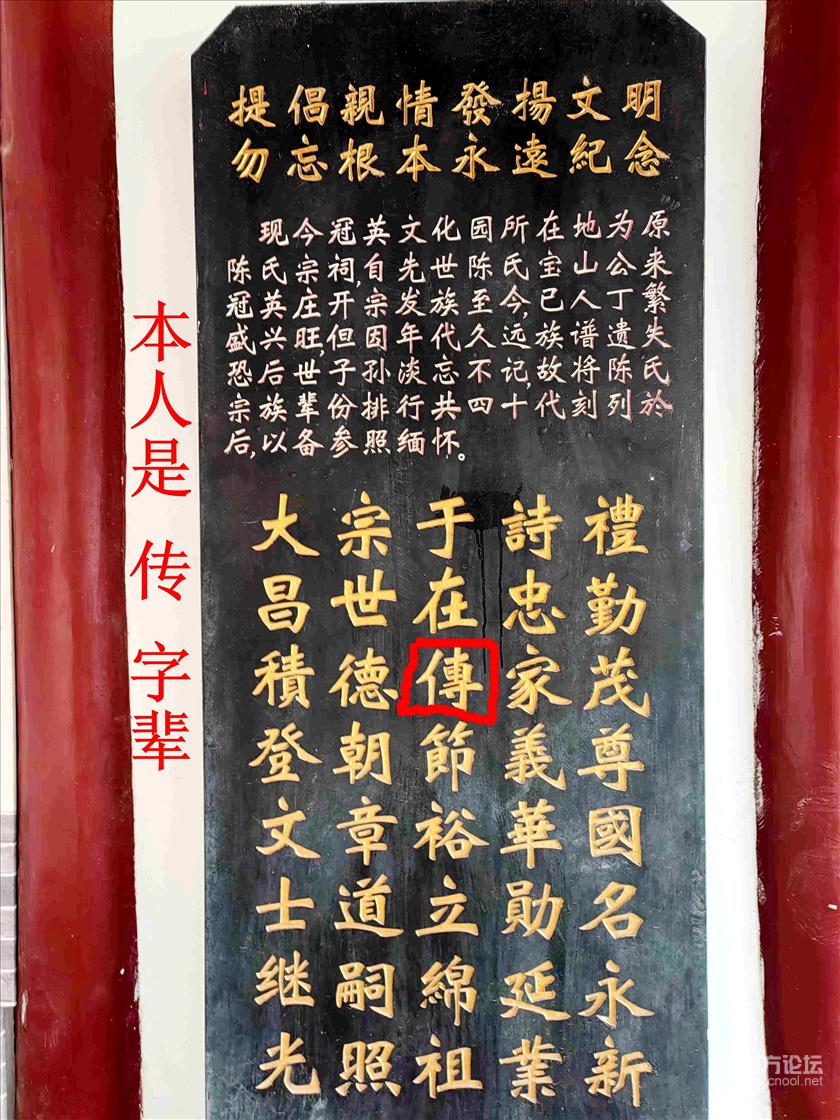 提倡親情發揚文明
勿忘根本永遠紀念
现今冠英文化园所在地为原
陈氏宗祠,自先世陈氏宝山公来
冠英庄开宗发族至今,已人丁繁
盛兴旺,但因年代久远族谱遗失
恐后世子孙淡忘不记,故将陈氏
宗族辈份排行共四十代刻列於
后,以备参照缅怀。
大宗于詩禮
昌世在忠勤
積德傳家茂
登朝節義尊
文章裕華國
士道立勛名
继嗣綿延永
光照祖業新
本人是 传 字辈
方论坛
cnool.net